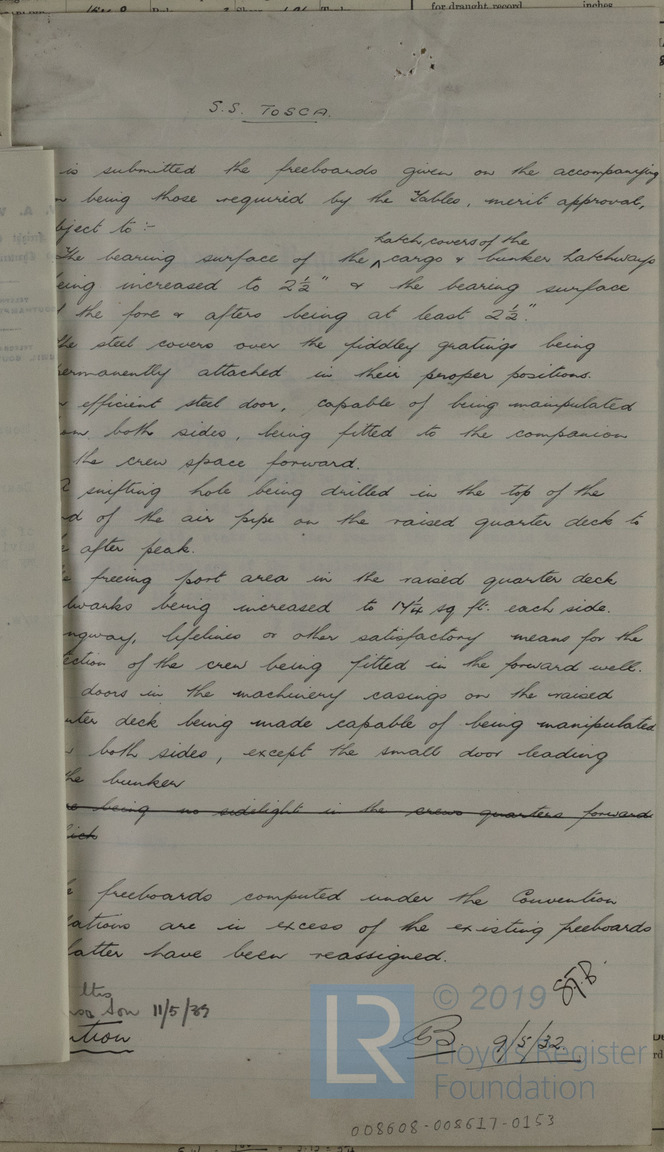 S.S. TOSCA.
is submitted the freeboards given on the accompanying
being those required by the Tables, merit approval,
bject to :-
hatch covers of the
The bearing surface of the cargo & bunker hatchways
eing increased to 2½" & the bearing surface
the fore & afters being at least 2½".
the steel covers over the fiddley gratings being
permanently attached in their proper positions.
efficient steel door, capable of being manipulated
om both sides, being fitted to the companion
the crew space forward.
A snifting hole being drilled in the top of the
d of the air pipe on the raised quarter deck to
after peak.
freeing port area in the raised quarter deck
lwarks being increased to 14¼ sq ft. each side.
ngway, lifelines or other satisfactory means for the
tection of the crew being fitted in the forward well.
doors in the machinery casings on the raised
rter deck being made capable of being manipulated
both sides, except the small door leading
the bunker
being no sidelight in the crews quarters forward
hich
freeboards computed under the Convention
lations are in excess of the existing freeboards
latter have been reassigned.
11/5/39
ntion
9/5/32.
© 2019
LR
Lloyd's Register
Foundation
008608-008617-0153
for draught record
inches